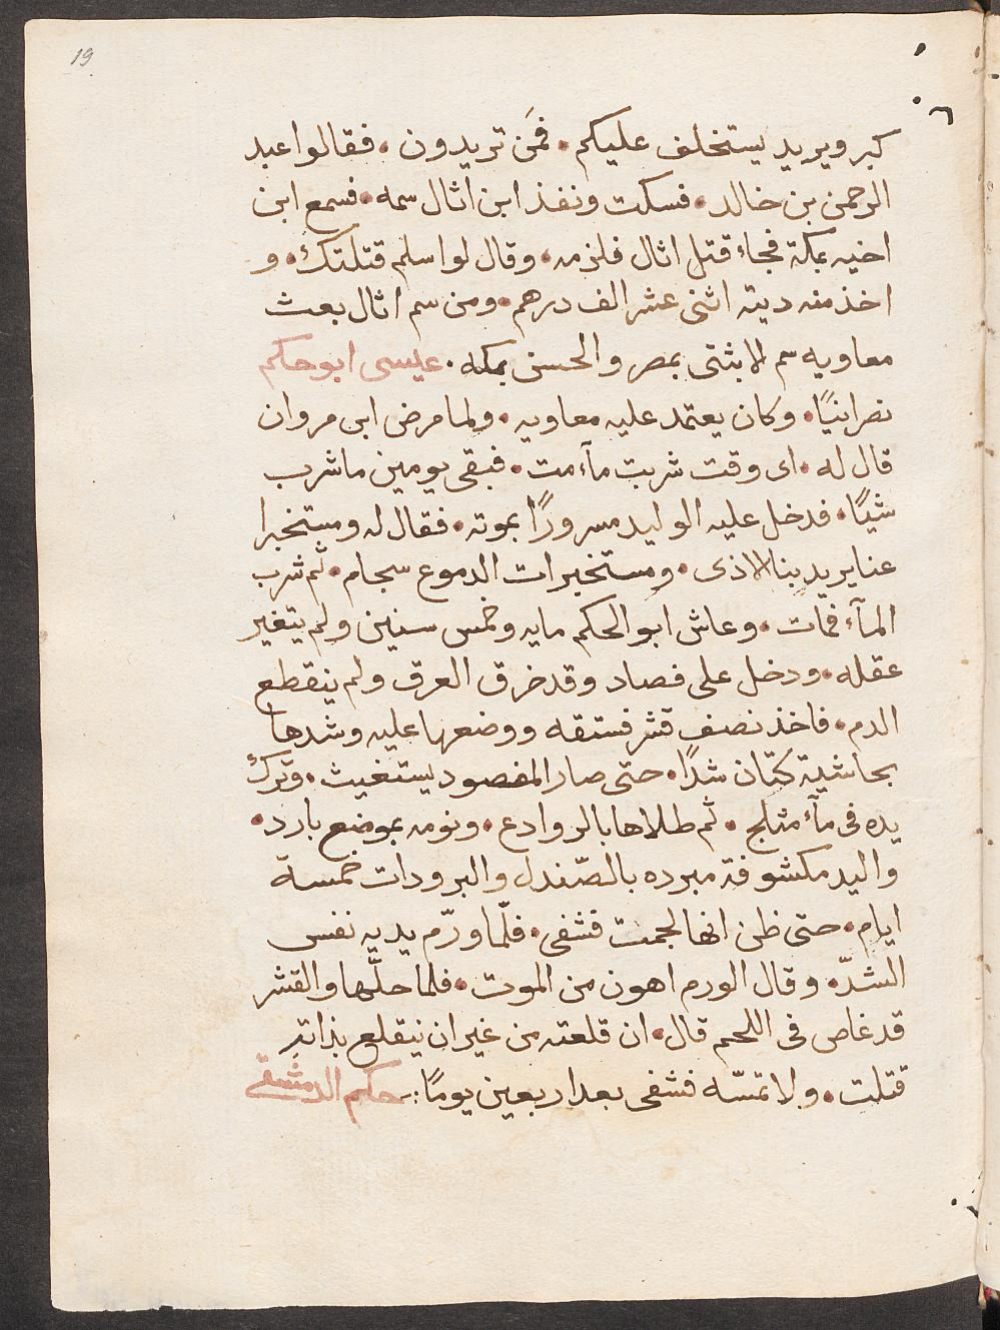 19
كبر ويريد يستخلف عليكم • فمَن تريدون • فقالوا عبد
الرحمن بن خالد • فسكت ونفذ ابن اثال سمه • فسمع ابن
اخيه بمكة فجاء قتل اثال فلزمه • وقال لو اسلم قتلتك • و
اخذ منه ديته اثنى عشر الف درهم • ومن سم اثال بعث
معاويه سم للاشتى بمصر والحسن بمكه • عيسى ابو حكم
نصرانيًا • وكان يعتمد عليه معاويه • ولما مرض ابى مروان
قال له • اى وقت شربت مآء مت • فبقى يومين ما شرب
شيًا • فدخل عليه الوليد مسرورًا بموته • فقال له ومستخبرا
عنا يريد بنا الاذى • ومستخبرات الدموع سجام • ثم شرب
المآء فمات • وعاش ابو الحكم مايه وخمس سنين ولم يتغير
عقله • ودخل على فصاد وقد خرق العرق ولم ينقطع
الدم • فاخذ نصف قشر فستقه ووضعها عليه وشدها
بحاشية كتان شدًا • حتى صار المفصود يستغيث • وترك
يده فى مآء مثلج • ثم طلاها بالروادع • ونومه بموضع بارد •
واليد مكشوفة مبرده بالصّندل والبرودات خمسة
ايام • حتى ظن انها لجمت فشفى • فلمّا ورّم يديه نفس
الشدّ • وقال الورم اهون من الموت • فلما حلّها والقشر
قد غاص فى اللحم قال • ان قلعته من غير ان ينقلع بذاته
قتلت • ولا تمسّه فشفى بعد اربعين يومًا :- حكم الدمشقى